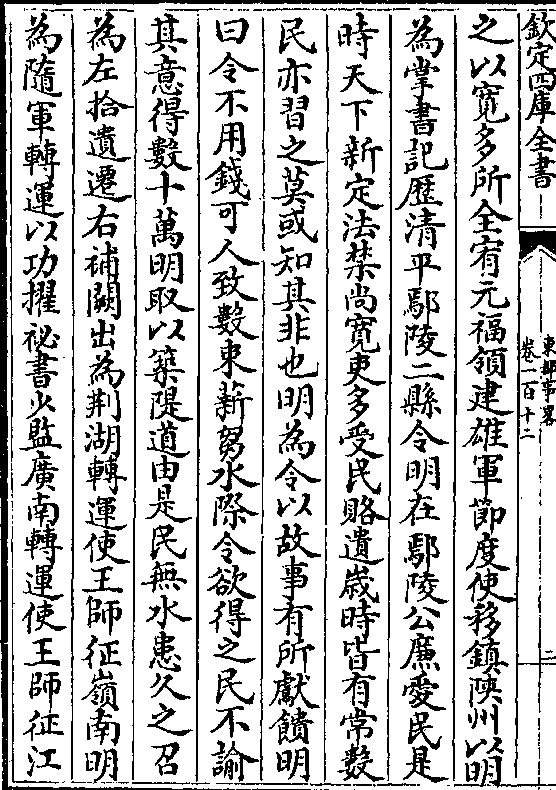 欽定四庫全書
東都事略
卷一百十二
二
之以寛多所全宥元福領建雄軍節度使移鎮陜州以明
為掌書記歴清平鄢陵二縣令明在鄢陵公廉愛民是
時天下新定法禁尚寛吏多受民賂遺歲時皆有常數
民亦習之莫或知其非也明為令以故事有所獻饋明
曰令不用錢可人致數束薪芻水際令欲得之民不諭
其意得數十萬明取以築隄道由是民無水患久之召
為左拾遺遷右補闕出為荆湖轉運使王師征嶺南明
為隨軍轉運以功擢祕書少監廣南轉運使王師征江